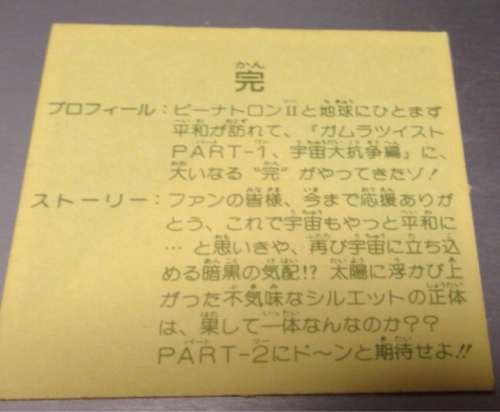 完
プロフィール：ピーナトロンⅡと地球にひとまず
平和が訪れて、「ガムラツイスト
PART-1、宇宙大抗争編」に、
大いなる"完"がやってきたゾ！
ストーリー：ファンの皆様、今まで応援ありが
とう、これで宇宙もやっと平和に
…と思いきや、再び宇宙に立ち込
める暗黒の気配!? 太陽に浮かび上
がった不気味なシルエットの正体
は、果して一体なんなのか??
PART-2にド〜ンと期待せよ!!